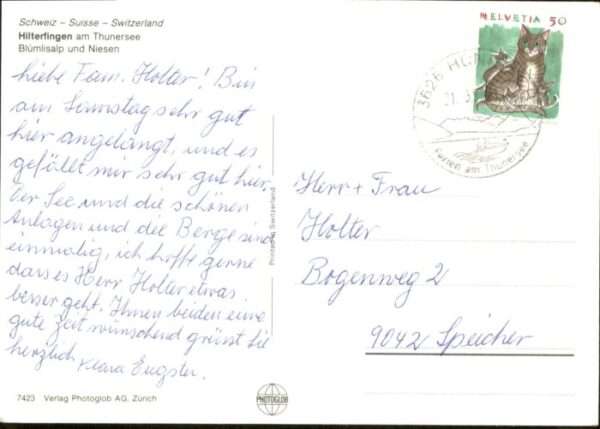 Schweiz – Suisse – Switzerland
Hilterfingen am Thunersee
Blümlisalp und Niesen
Liebe Fam. Holter! Bin
am Samstag sehr gut
hier angelangt, und es
gefällt mir sehr gut hier.
Der See und die schönen
Anlagen und die Berge sind
einmalig, ich hoffe gerne
dass es Herr Holter etwas
besser geht. Ihnen beiden eine
gute Zeit wünschend grüsst Sie
herzlich Klara Eugster.
7423 Verlag Photoglob AG, Zürich
Printed in Switzerland
PHOTOGLOB
HELVETIA 50
3626 HÜN
21. 3
Ferien am Thunersee
Herr + Frau
Holter
Bogenweg 2
9042 Speicher